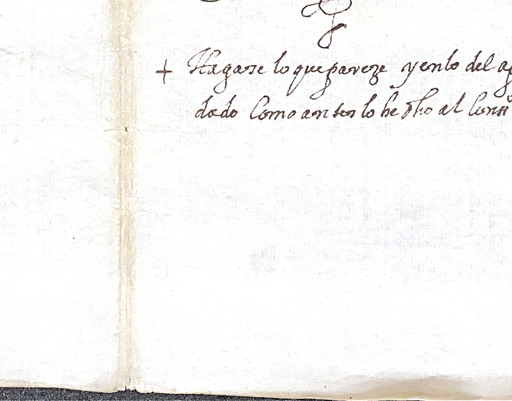 + Hagase lo que pareze y en lo del
dado Como antes lo he dho al